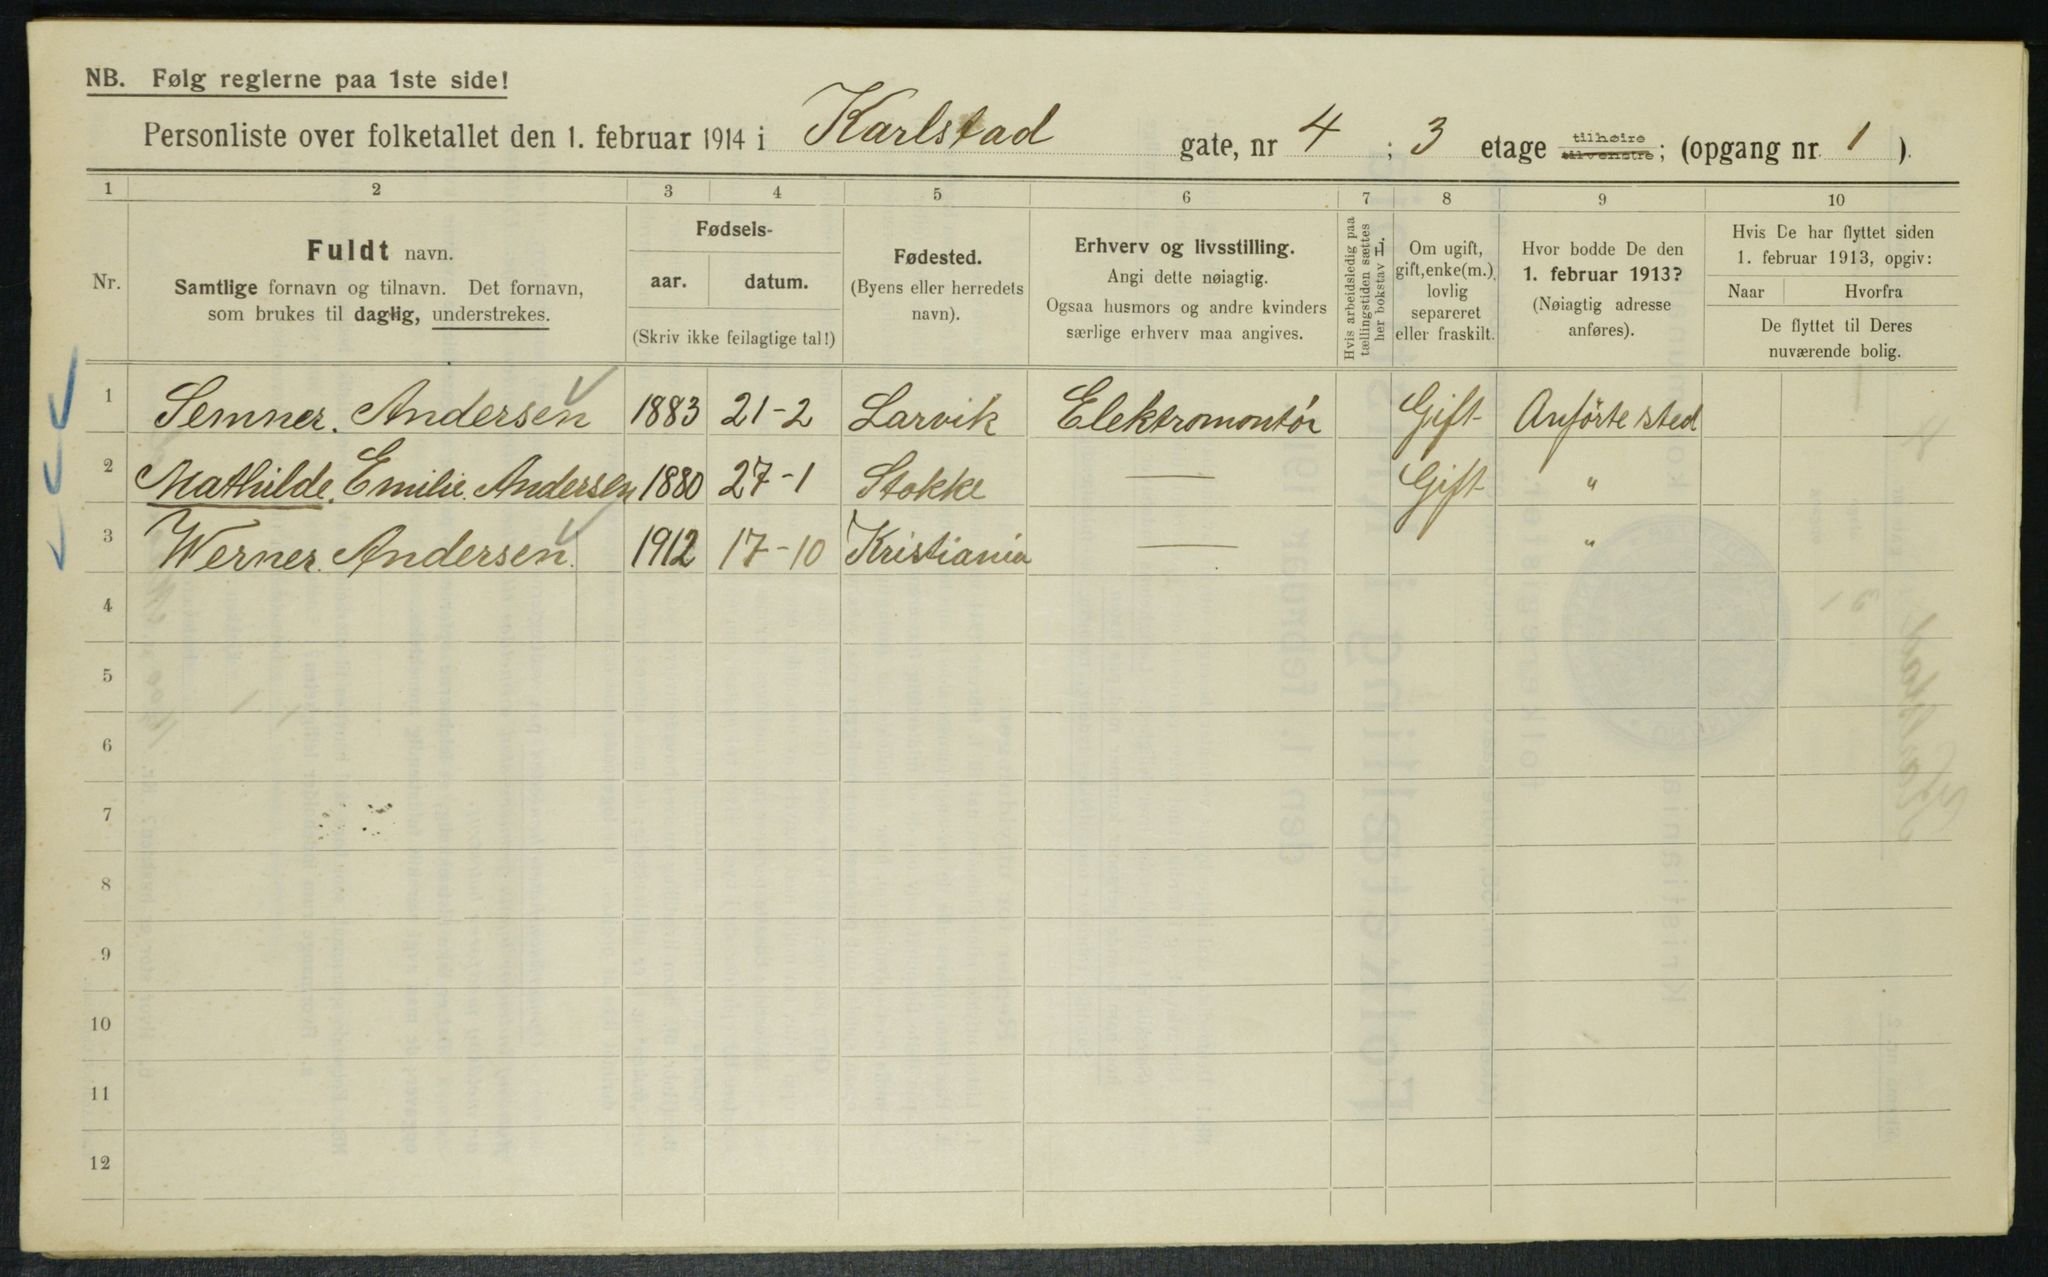 NB. Følg reglerne paa 1ste side!
Personliste over folketallet den 1. februar 1914 i Karlstad gate, nr 4 ; 3 etage tilhøire tilvenstre; (opgang nr. 1 ).
1 2 3 4 5 6 7 8 9 10
Nr.
Fuldt navn.
Samtlige fornavn og tilnavn. Det fornavn,
som brukes til daglig, understrekes.
Fødsels-
aar. datum.
(Skriv ikke feilagtige tal!)
Fødested.
(Byens eller herredets
navn).
Erhverv og livsstilling.
Angi dette nøiagtig.
Ogsaa husmors og andre kvinders
særlige erhverv maa angives.
Hvis arbeidsledig paa
tællingstiden sættes
her bokstav L.
Om ugift,
gift, enke(m.),
lovlig
separeret
eller fraskilt.
Hvor bodde De den
1. februar 1913?
(Nøiagtig adresse
anføres).
Hvis De har flyttet siden
1. februar 1913, opgiv:
Naar Hvorfra
De flyttet til Deres
nuværende bolig.
1 Semner. Andersen 1883 21-2 Larvik Elektromontör Gift Anförte sted
2 Mathilde. Emilie. Andersen 1880 27-1 Stokke — Gift "
3 Werner. Andersen. 1912 17-10 Kristiania — "
4
5
6
7
8
9
10
11
12